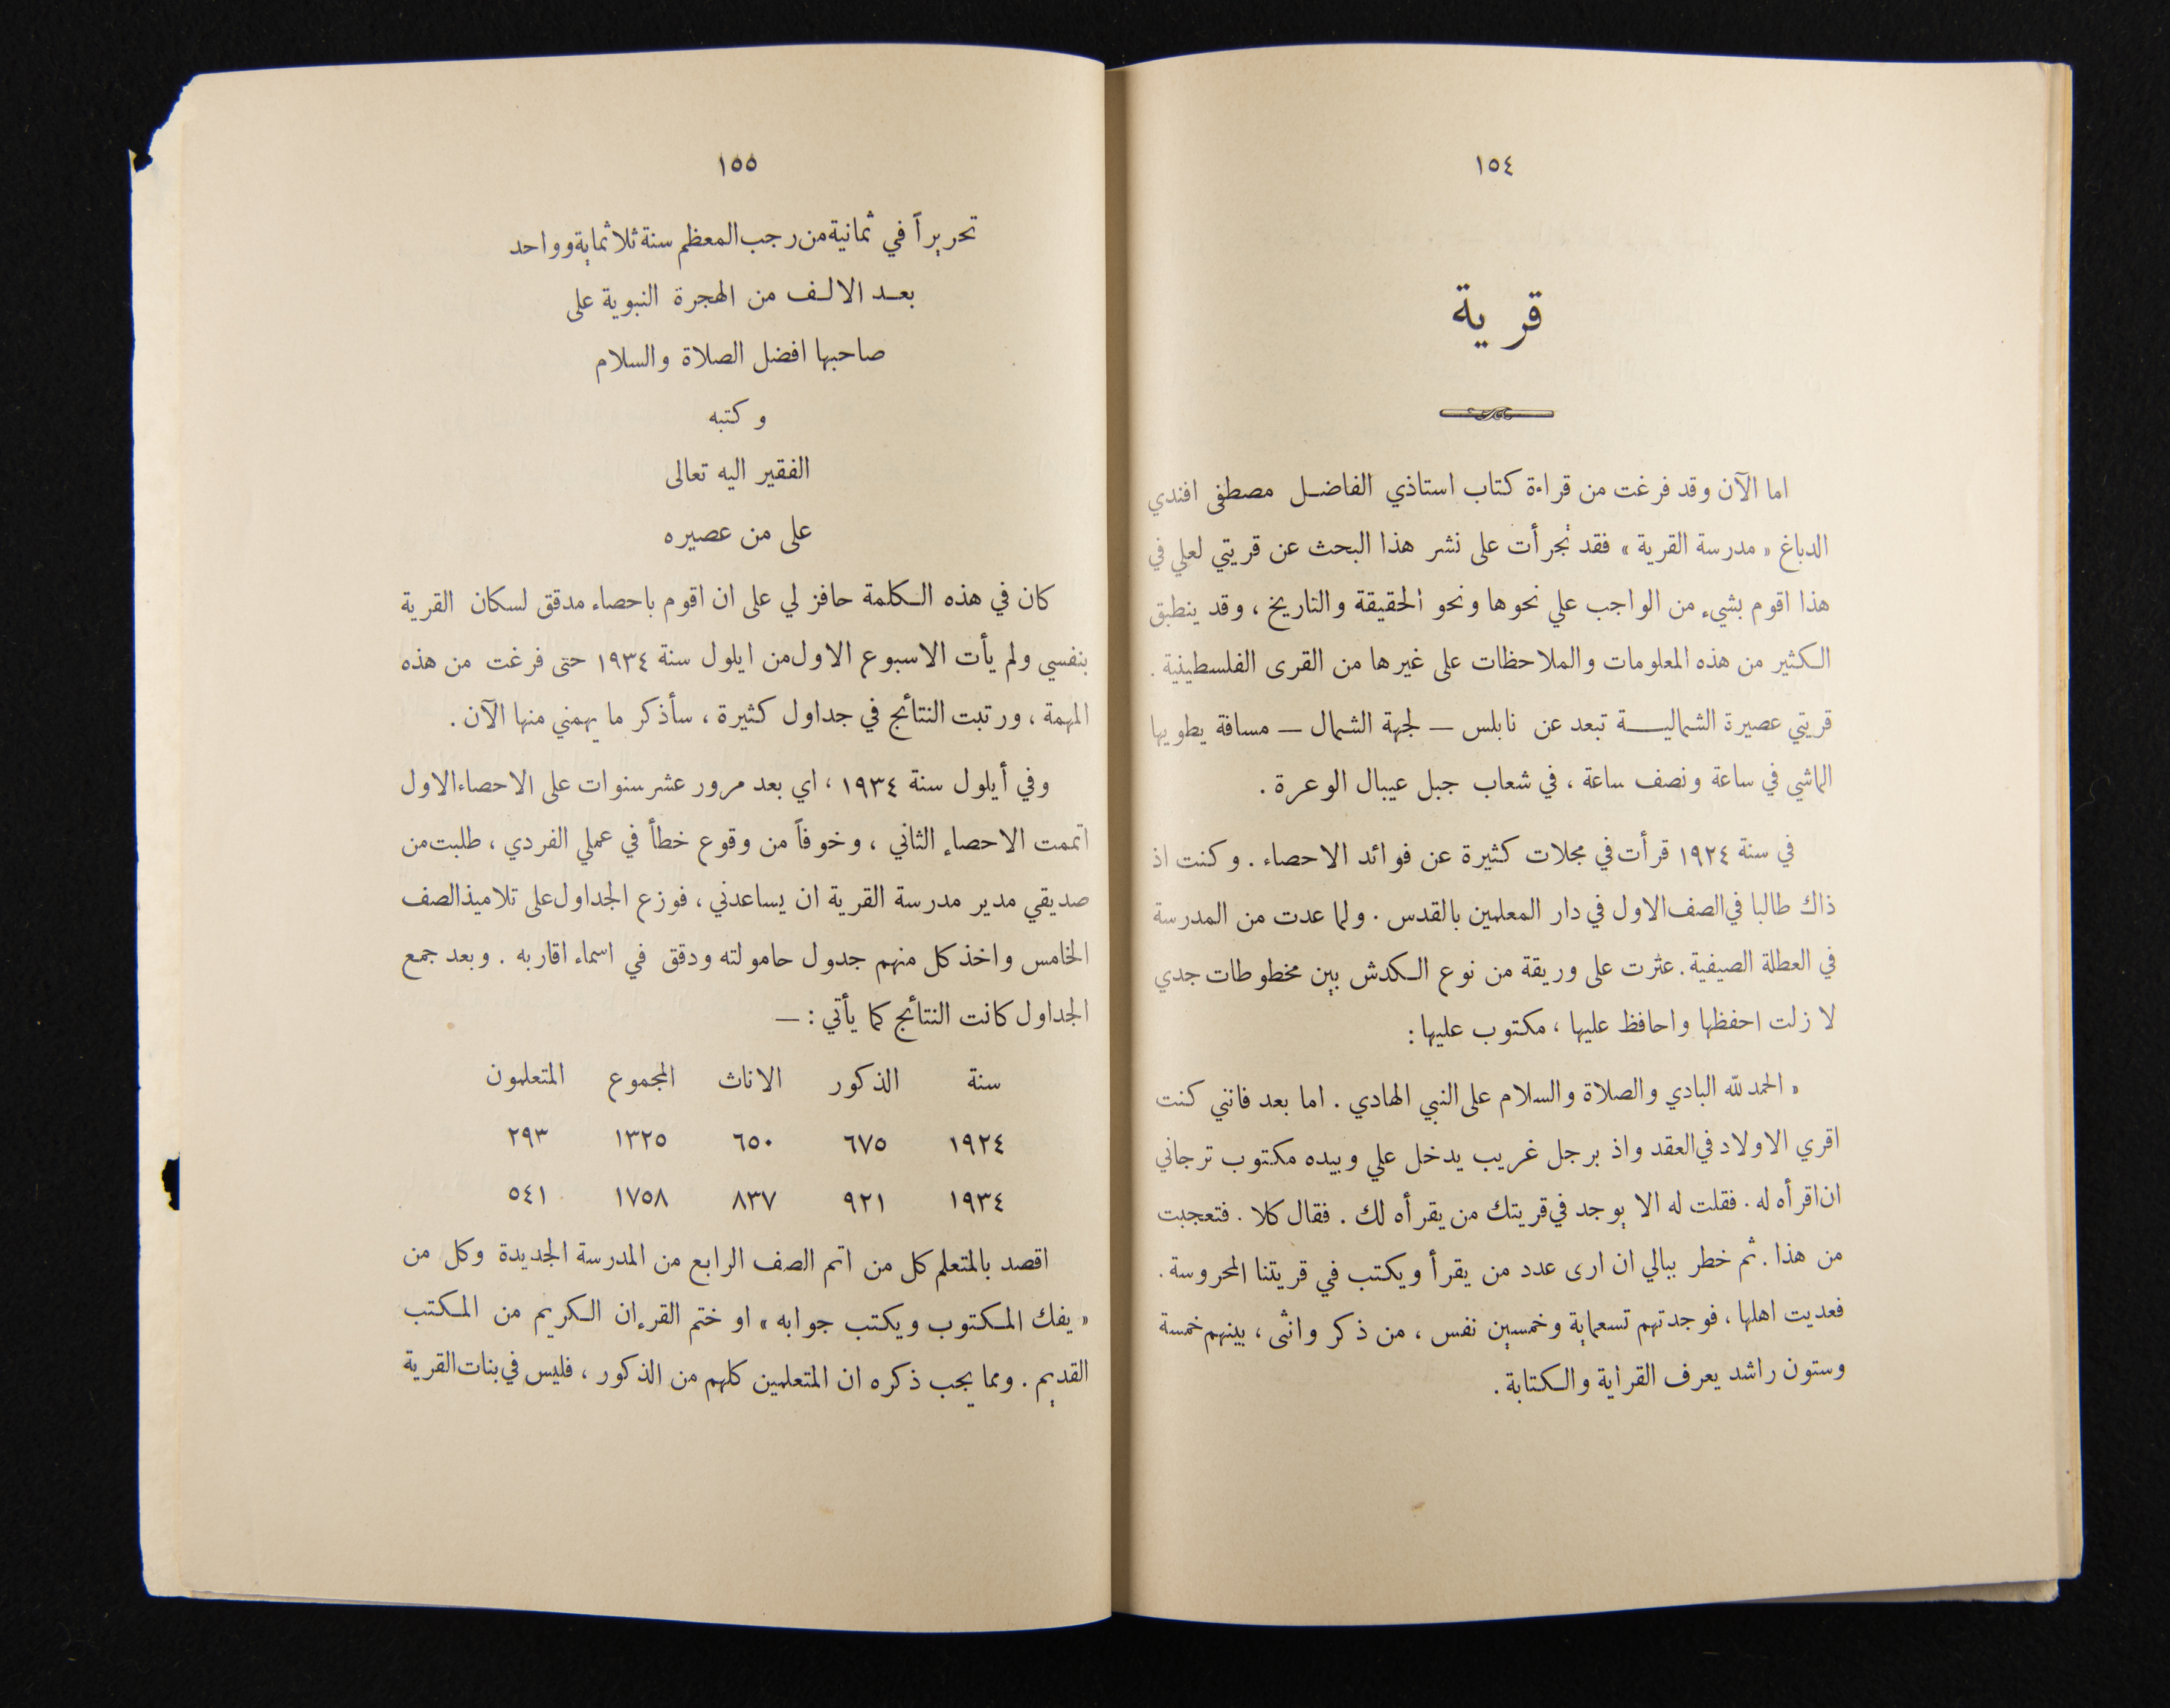 ١٥٤
قرية
اما الآن وقد فرغت من قراءة كتاب استاذي الفاضل مصطفى افندي
الدباغ « مدرسة القرية » فقد تجرأت على نشر هذا البحث عن قريتي لعلي في
هذا اقوم بشيء من الواجب علي نحوها ونحو الحقيقة والتاريخ ، وقد ينطبق
الكثير من هذه المعلومات والملاحظات على غيرها من القرى الفلسطينية .
قريتي عصيرة الشمالية تبعد عن نابلس — لجهة الشمال — مسافة يطويها
الماشي في ساعة ونصف ساعة ، في شعاب جبل عيبال الوعرة .
في سنة ١٩٢٤ قرأت في مجلات كثيرة عن فوائد الاحصاء . وكنت اذ
ذاك طالبا في الصف الاول في دار المعلمين بالقدس . ولما عدت من المدرسة
في العطلة الصيفية . عثرت على وريقة من نوع الكدش بين مخطوطات جدي
لا زلت احفظها واحافظ عليها ، مكتوب عليها :
« الحمد لله البادي والصلاة والسلام على النبي الهادي . اما بعد فانني كنت
اقري الاولاد في العقد واذ برجل غريب يدخل علي وبيده مكتوب ترجاني
ان اقرأه له . فقلت له الا يوجد في قريتك من يقرأه لك . فقال كلا . فتعجبت
من هذا . ثم خطر ببالي ان ارى عدد من يقرأ ويكتب في قريتنا المحروسة .
فعديت اهلها ، فوجدتهم تسعماية وخمسين نفس ، من ذكر وانثى ، بينهم خمسة
وستون راشد يعرف القراية والكتابة .
١٥٥
تحريراً في ثمانية من رجب المعظم سنة ثلاثماية وواحد
بعد الالف من الهجرة النبوية على
صاحبها افضل الصلاة والسلام
وكتبه
الفقير اليه تعالى
على من عصيره
كان في هذه الكلمة حافز لي على ان اقوم باحصاء مدقق لسكان القرية
بنفسي ولم يأت الاسبوع الاول من ايلول سنة ١٩٣٤ حتى فرغت من هذه
المهمة ، ورتبت النتائج في جداول كثيرة ، سأذكر ما يهمني منها الآن .
وفي أيلول سنة ١٩٣٤ ، اي بعد مرور عشر سنوات على الاحصاء الاول
اتممت الاحصاء الثاني ، وخوفاً من وقوع خطأ في عملي الفردي ، طلبت من
صديقي مدير مدرسة القرية ان يساعدني ، فوزع الجداول على تلاميذ الصف
الخامس واخذ كل منهم جدول حامولته ودقق في اسماء اقاربه . وبعد جمع
الجداول كانت النتائج كما يأتي : —
سنة الذكور الاناث المجموع المتعلمون
١٩٢٤ ٦٧٥ ٦٥٠ ١٣٢٥ ٢٩٣
١٩٣٤ ٩٢١ ٨٣٧ ١٧٥٨ ٥٤١
اقصد بالمتعلم كل من اتم الصف الرابع من المدرسة الجديدة وكل من
« يفك المكتوب ويكتب جوابه » او ختم القرءان الكريم من المكتب
القديم . ومما يجب ذكره ان المتعلمين كلهم من الذكور ، فليس في بنات القرية